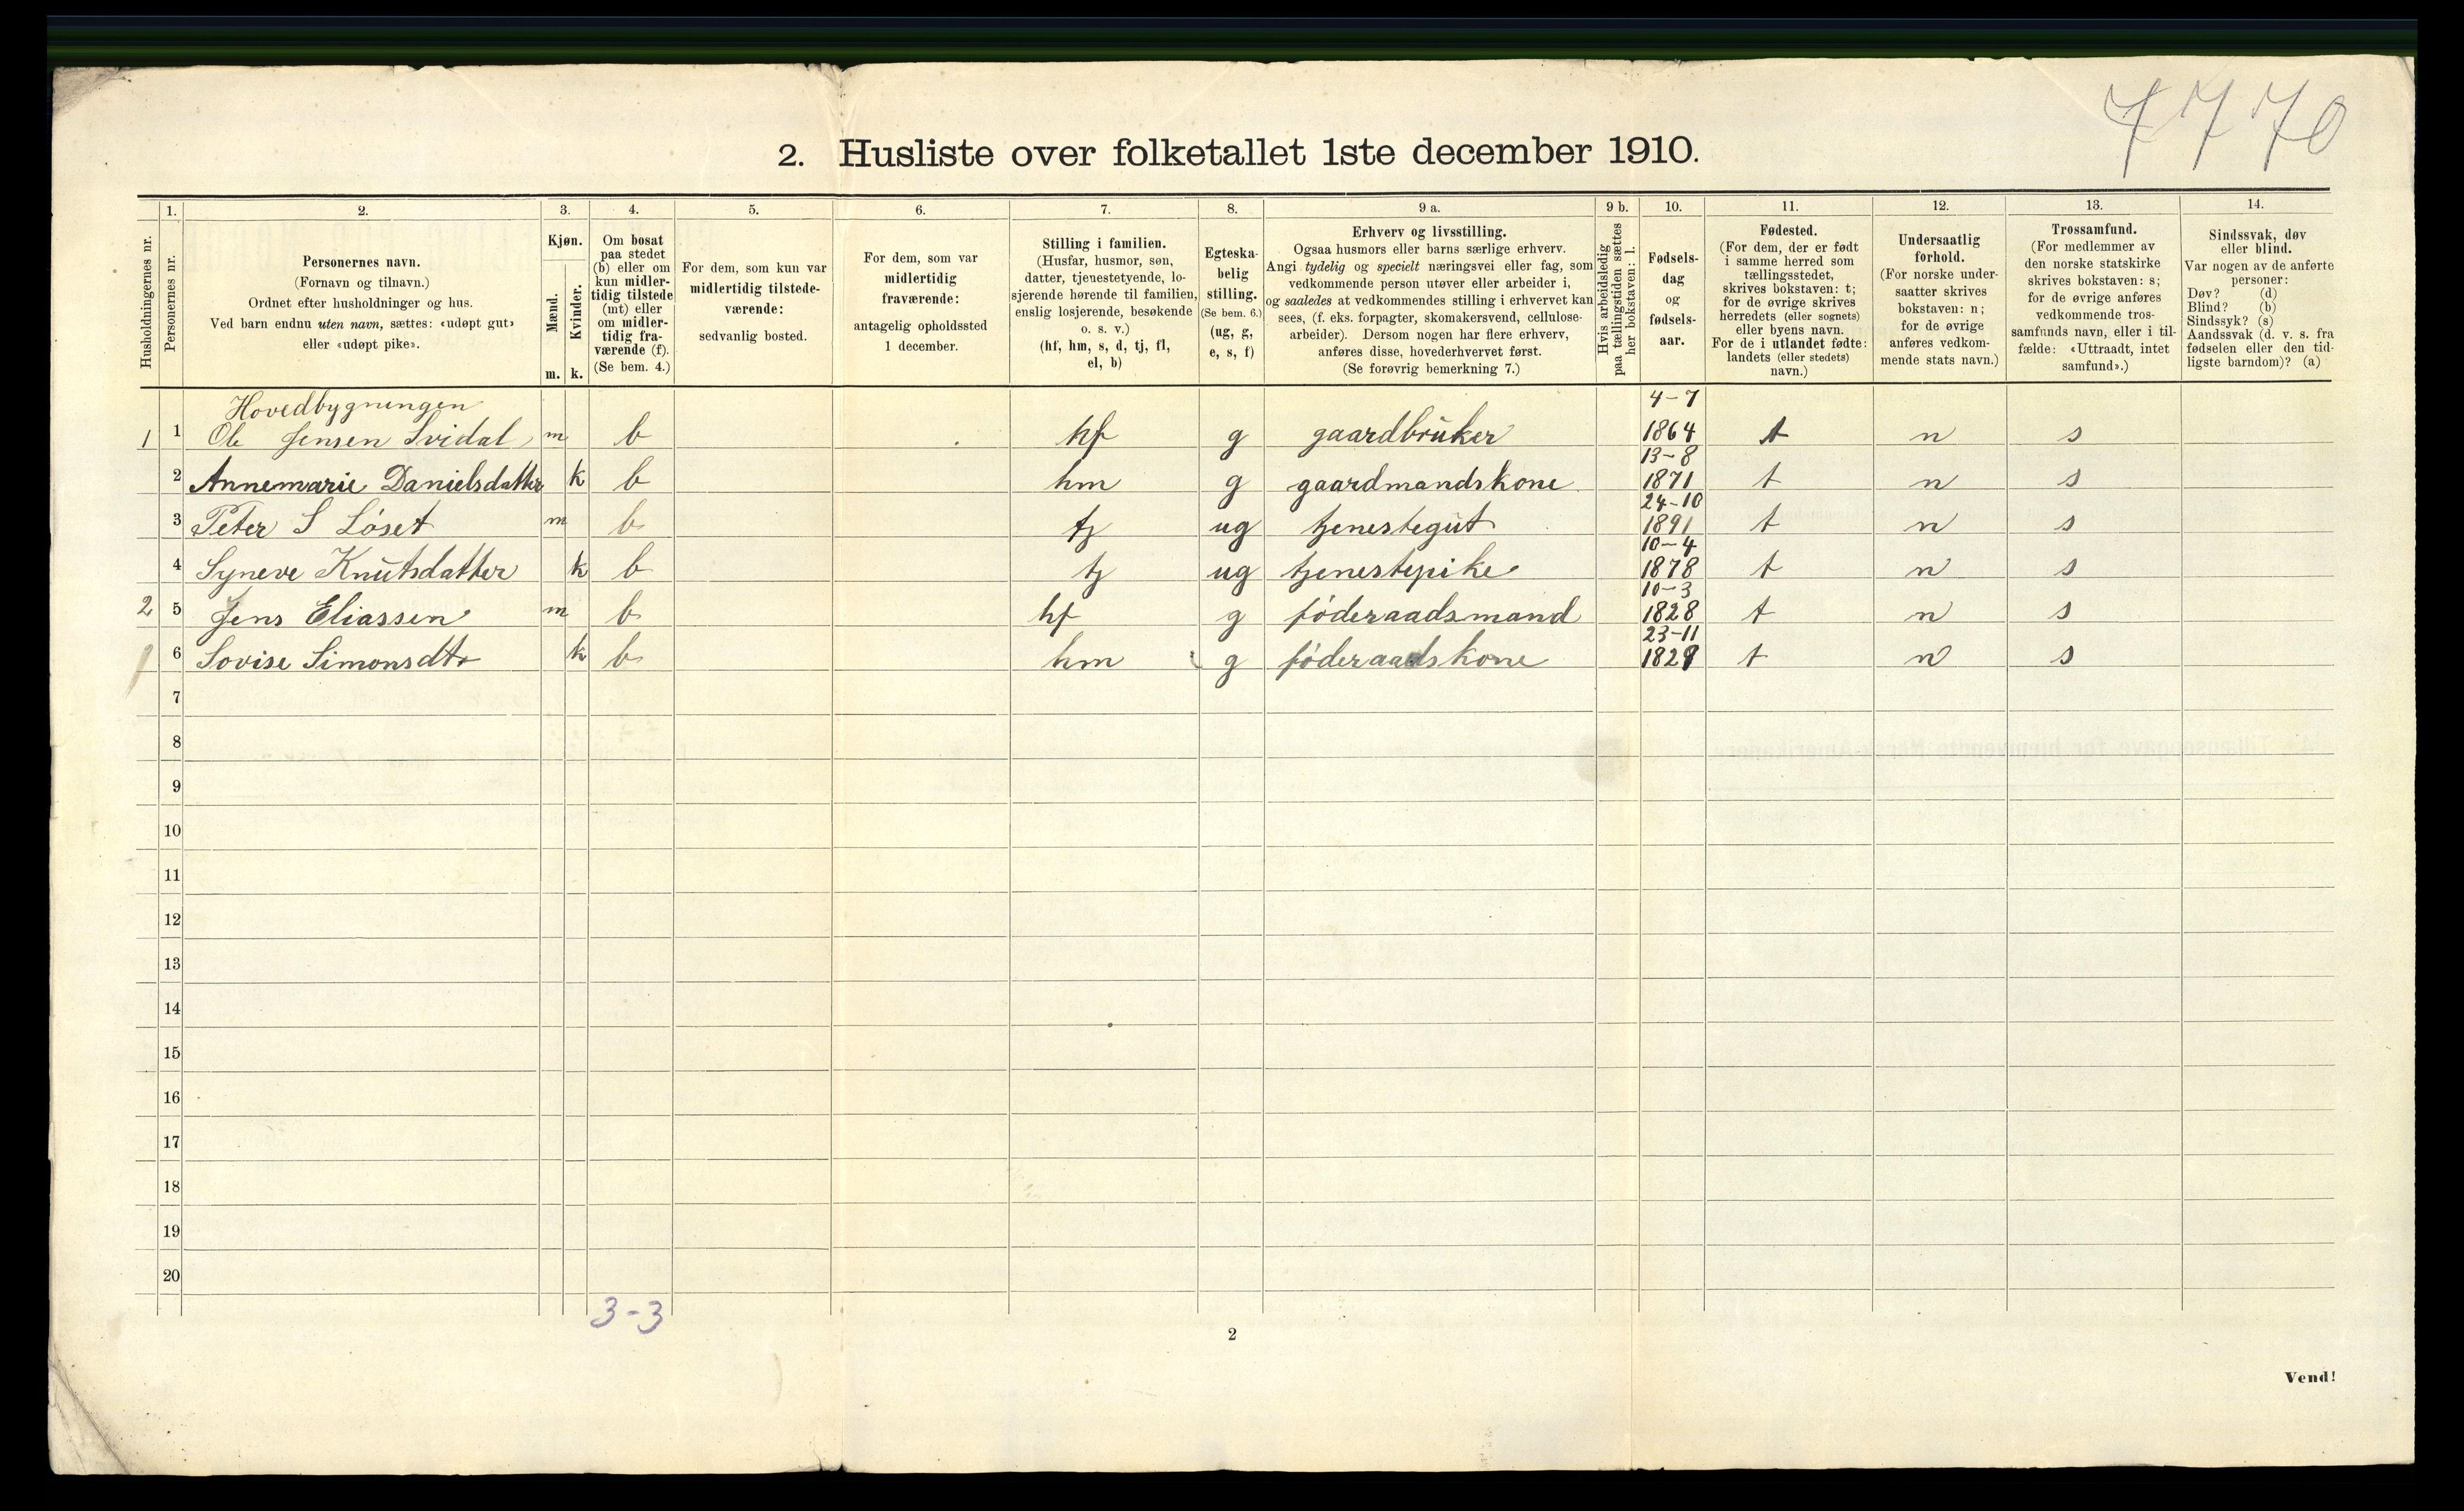 7770
2. Husliste over folketallet 1ste december 1910.
Husholdningernes nr.
1.
Personernes nr.
2.
Personernes navn.
(Fornavn og tilnavn.)
Ordnet efter husholdninger og hus.
Ved barn endnu uten navn, sættes: «udøpt gut»
eller «udøpt pike».
3.
Kjøn.
Mænd.
Kvinder.
m. k.
4.
Om bosat
paa stedet
(b) eller om
kun midler-
tidig tilstede
(mt) eller
om midler-
tidig fra-
værende (f).
(Se bem. 4.)
5.
For dem, som kun var
midlertidig tilstede-
værende:
sedvanlig bosted.
6.
For dem, som var
midlertidig
fraværende:
antagelig opholdssted
1 december.
7.
Stilling i familien.
(Husfar, husmor, søn,
datter, tjenestetyende, lo-
sjerende hørende til familien,
enslig losjerende, besøkende
o. s. v.)
(hf, hm, s, d, tj, fl,
el, b)
8.
Egteska-
belig
stilling.
(Se bem. 6.)
(ug, g,
e, s, f)
9 a.
Erhverv og livsstilling.
Ogsaa husmors eller barns særlige erhverv.
Angi tydelig og specielt næringsvei eller fag, som
vedkommende person utøver eller arbeider i,
og saaledes at vedkommendes stilling i erhvervet kan
sees, (f. eks. forpagter, skomakersvend, cellulose-
arbeider). Dersom nogen har flere erhverv,
anføres disse, hovederhvervet først.
(Se forøvrig bemerkning 7.)
9 b.
Hvis arbeidsledig
paa tællingstiden sættes
her bokstaven: l.
10.
Fødsels-
dag
og
fødsels-
aar.
11.
Fødested.
(For dem, der er født
i samme herred som
tællingsstedet,
skrives bokstaven: t;
for de øvrige skrives
herredets (eller sognets)
eller byens navn.
For de i utlandet fødte:
landets (eller stedets)
navn.)
12.
Undersaatlig
forhold.
(For norske under-
saatter skrives
bokstaven: n;
for de øvrige
anføres vedkom-
mende stats navn.)
13.
Trossamfund.
(For medlemmer av
den norske statskirke
skrives bokstaven: s;
for de øvrige anføres
vedkommende tros-
samfunds navn, eller i til-
fælde: «Uttraadt, intet
samfund».)
14.
Sindssvak, døv
eller blind.
Var nogen av de anførte
personer:
Døv? (d)
Blind? (b)
Sindssyk? (s)
Aandssvak (d. v. s. fra
fødselen eller den tid-
ligste barndom)? (a)
Hovedbygningen 4-7
1 1 Ole Jensen Svidal m b hf g gaardbruker 1864 t n s
13-8
2 Annemarie Danielsdatter k b hm g gaardmandskone 1871 t n s
24-10
3 Peter S Løset m b tj ug tjenestegut 1891 t n s
10-4
4 Syneve Knutsdatter k b tj ug tjenestepike 1878 t n s
10-3
2 5 Jens Eliassen m b hf g føderaadsmand 1828 t n s
23-11
6 Lovise Simonsdtr k b hm g føderaadskone 1829 t n s
7
8
9
10
11
12
13
14
15
16
17
18
19
20
3-3
2
Vend!